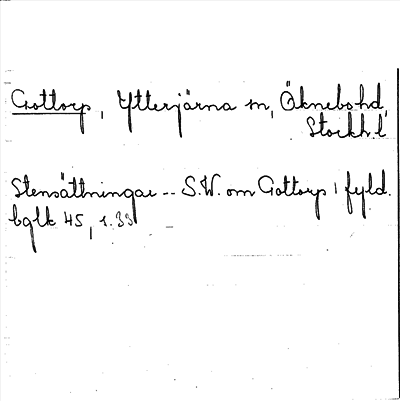 Gottorp, Ytterjärna sn, Öknebo hd,
Stockh. l.
Stensättningar -- S.W. om Gottorp, fyld.
bglt 45, s. 33